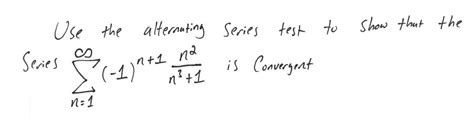 Use the alternating Series test to show that the
Series ∞∑n=1 (-1)^n+1 n²/n³+1 is Convergent